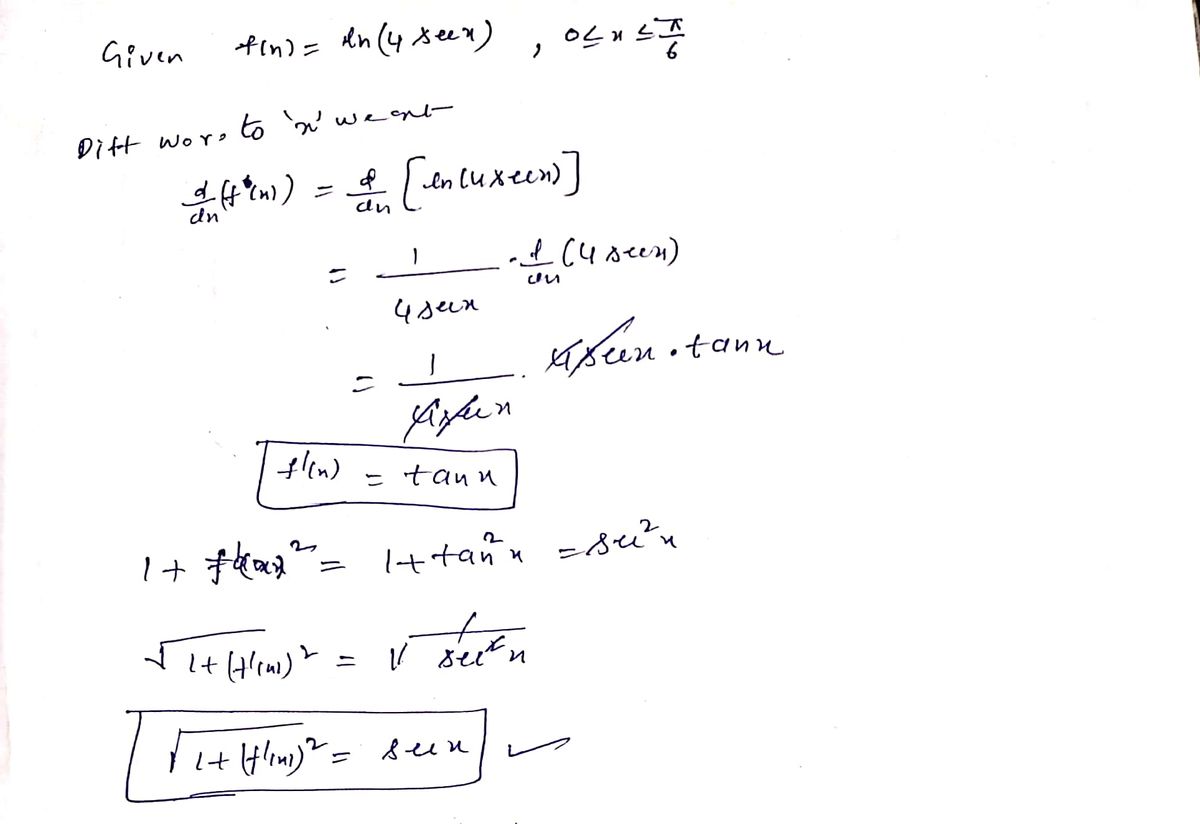 Given f(x) = ln(4 sec x) , 0 ≤ x ≤ π/6
Diff w.r. to 'x' we get
d/dx (f(x)) = d/dx [ln(4 sec x)]
= 1/(4 sec x) · d/dx (4 sec x)
= 1/(4 sec x) · 4 sec x · tan x
f'(x) = tan x
1 + f'(x)² = 1 + tan² x = sec² x
√(1 + (f'(x))²) = √(sec² x)
√(1 + (f'(x))²) = sec x ✓